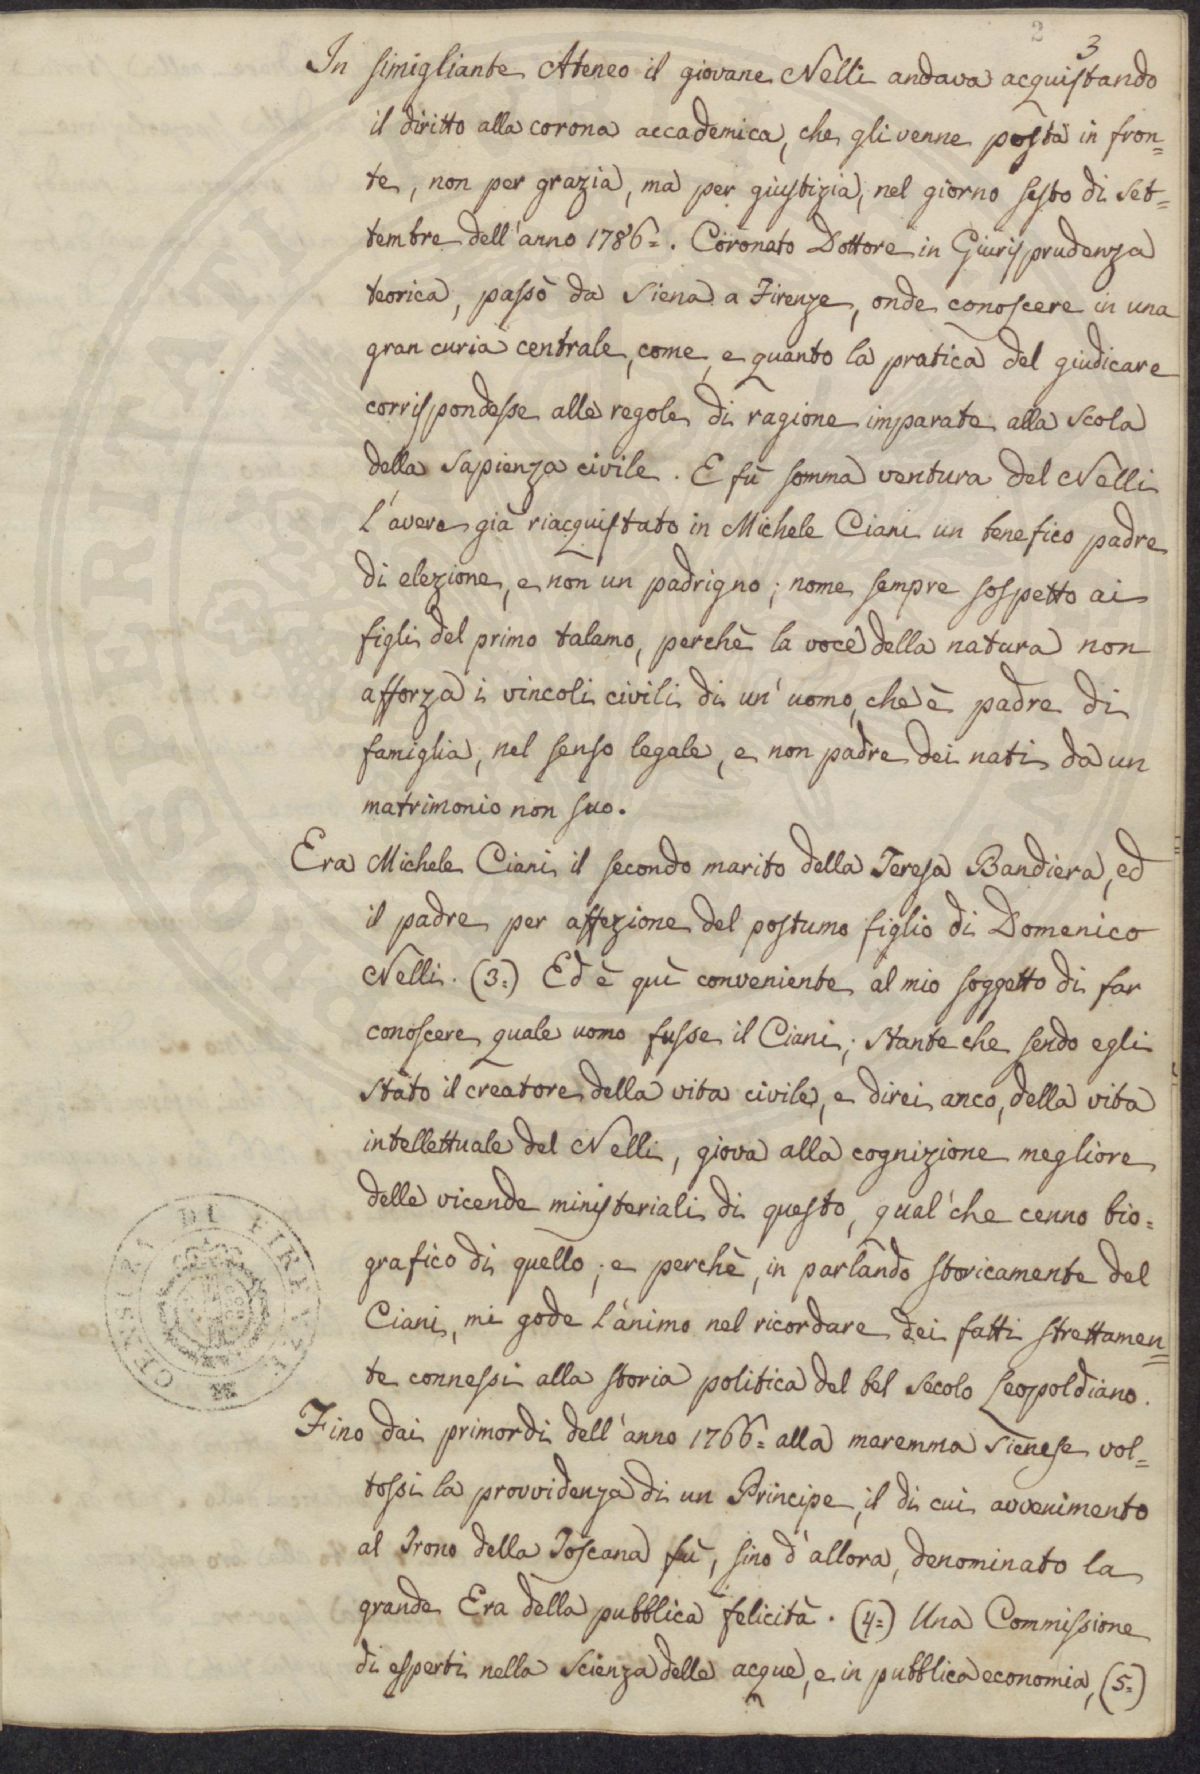 2
3
In simigliante Ateneo il giovane Nelli andava acquistando
il diritto alla corona accademica, che gli venne posta in fron=
te, non per grazia, ma per giustizia, nel giorno sesto di Set=
tembre dell'anno 1786=. Coronato Dottore in Giurisprudenza
teorica, passò da Siena a Firenze, onde conoscere in una
gran curia centrale, come, e quanto la pratica del giudicare
corrispondesse alle regole di ragione imparate alla scola
della Sapienza civile. E fù somma ventura del Nelli
l'avere già riacquistato in Michele Ciani un benefico padre
di elezione, e non un padrigno; nome sempre sospetto ai
figli del primo talamo, perchè la voce della natura non
afforza i vincoli civili di un'uomo, che è padre di
famiglia, nel senso legale, e non padre dei nati da un
matrimonio non suo.
Era Michele Ciani il secondo marito della Teresa Bandiera, ed
il padre per affezione del postumo figlio di Domenico
Nelli. (3=) Ed è quì conveniente al mio soggetto di far
conoscere quale uomo fusse il Ciani; stante che sendo egli
stato il creatore della vita civile, e direi anco, della vita
intellettuale del Nelli, giova alla cognizione megliore
delle vicende ministeriali di questo, qual'che cenno bio=
grafico di quello; e perchè, in parlando storicamente del
Ciani, mi gode l'animo nel ricordare dei fatti strettamen=
te connessi alla storia politica del bel secolo Leopoldiano.
Fino dai primordi dell'anno 1766= alla maremma Sienese vol=
tossi la provvidenza di un Principe, il di cui avvenimento
al Trono della Toscana fù, sino d'allora, denominato la
grande Era della pubblica felicità. (4=) Una Commissione
di esperti nella scienza delle acque, e in pubblica economia, (5=)
CENSURA DI FIRENZE